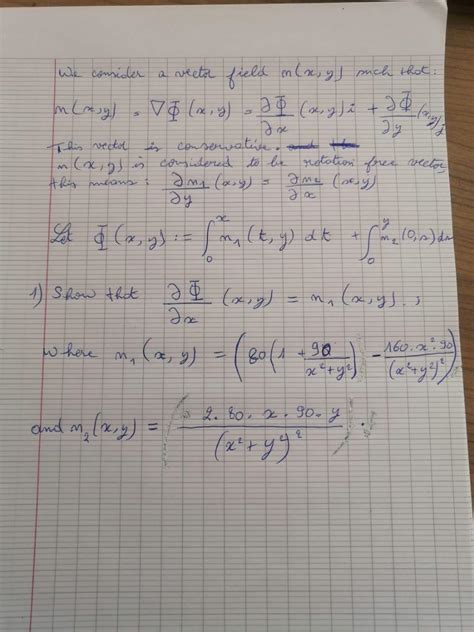 We consider a vector field n(x,y) such that:
n(x,y) = ∇Φ(x,y) = ∂Φ/∂x (x,y) i + ∂Φ/∂y (x,y) j
This vector is conservative.
n(x,y) is considered to be rotation free vector,
this means: ∂n₁/∂y (x,y) = ∂n₂/∂x (x,y)
Let Φ(x,y) := ∫₀ˣ n₁(t,y) dt + ∫₀ʸ n₂(0,s) ds
1) Show that ∂Φ/∂x (x,y) = n₁(x,y).,
where n₁(x,y) = (80(1 + 90/(x²+y²)) - 160·x²·90/(x²+y²)²)
and n₂(x,y) = (- 2·80·x·90·y/(x²+y²)²).